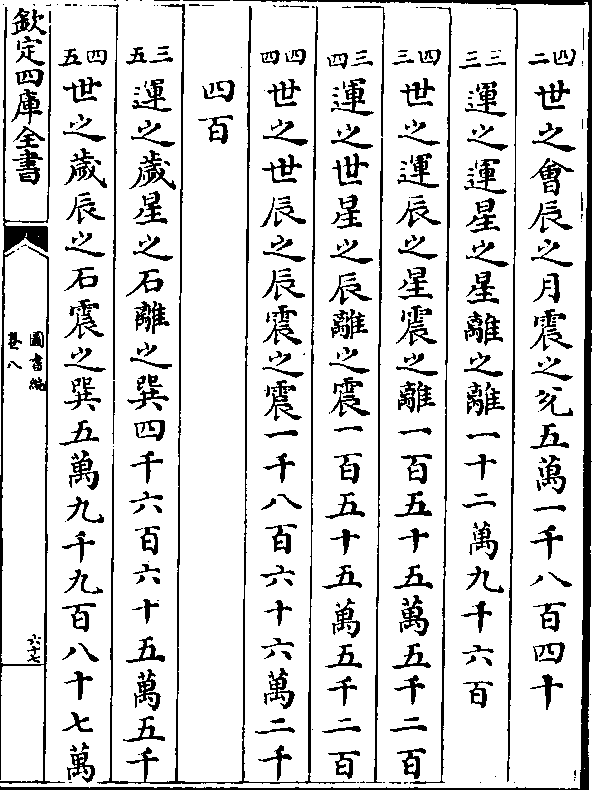 四二世之會辰之月震之兊五萬一千八百四十
三三運之運星之星離之離一十二萬九千六百
四三世之運辰之星震之離一百五十五萬五千二百
三四運之世星之辰離之震一百五十五萬五千二百
四四世之世辰之辰震之震一千八百六十六萬二千
四百
三五運之歲星之石離之巽四千六百六十五萬五千
四五世之歲辰之石震之巽五萬九千九百八十七萬
欽定四庫全書
圖書編
卷八
六十七